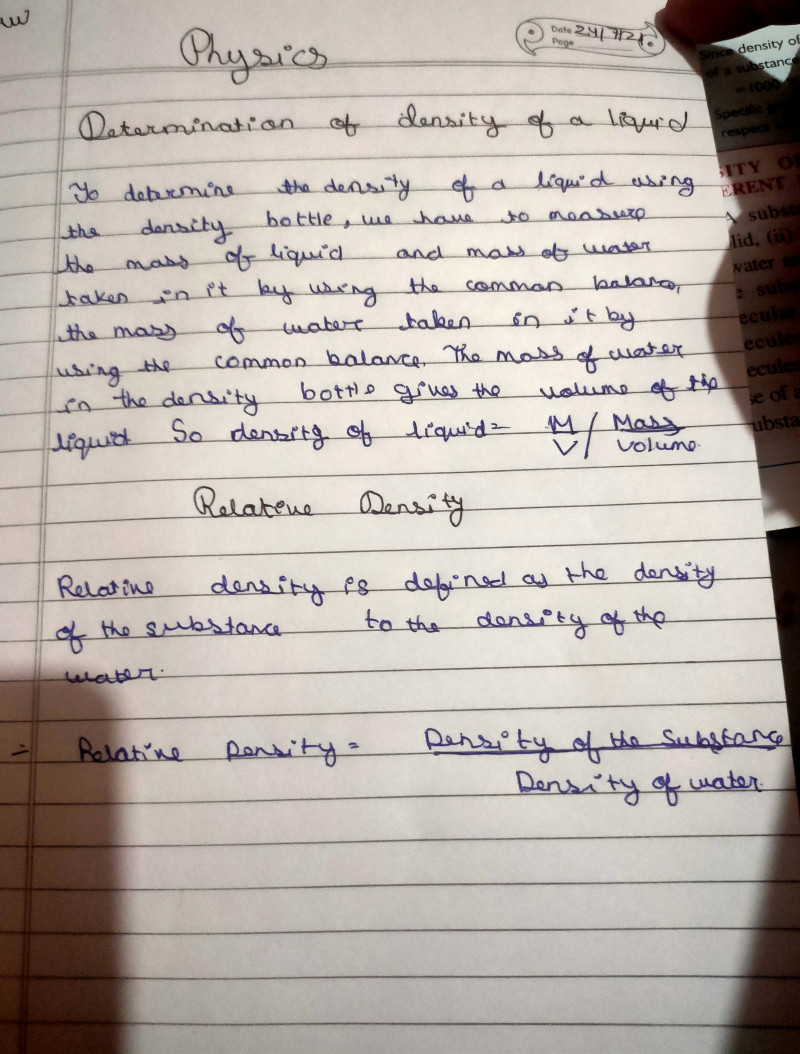 Physics
Date 24/7/21
Page
Determination of density of a liquid
To determine the density of a liquid using
the density bottle, we have to measure
the mass of liquid and mass of water
taken in it by using the common balance,
the mass of water taken in it by
using the common balance. The mass of water
in the density bottle gives the volume of the
liquid So density of liquid = M / Mass
V / Volume.
Relative Density
Relative density is defined as the density
of the substance to the density of the
water.
÷ Relative Density = Density of the Substance
Density of water.
Since density of
of a substance
= 1000
Specific
respect
SITY OF
ERENT
A subst
lid, (ii)
water
subs
ecular
ecules
ecules
se of a
ubsta